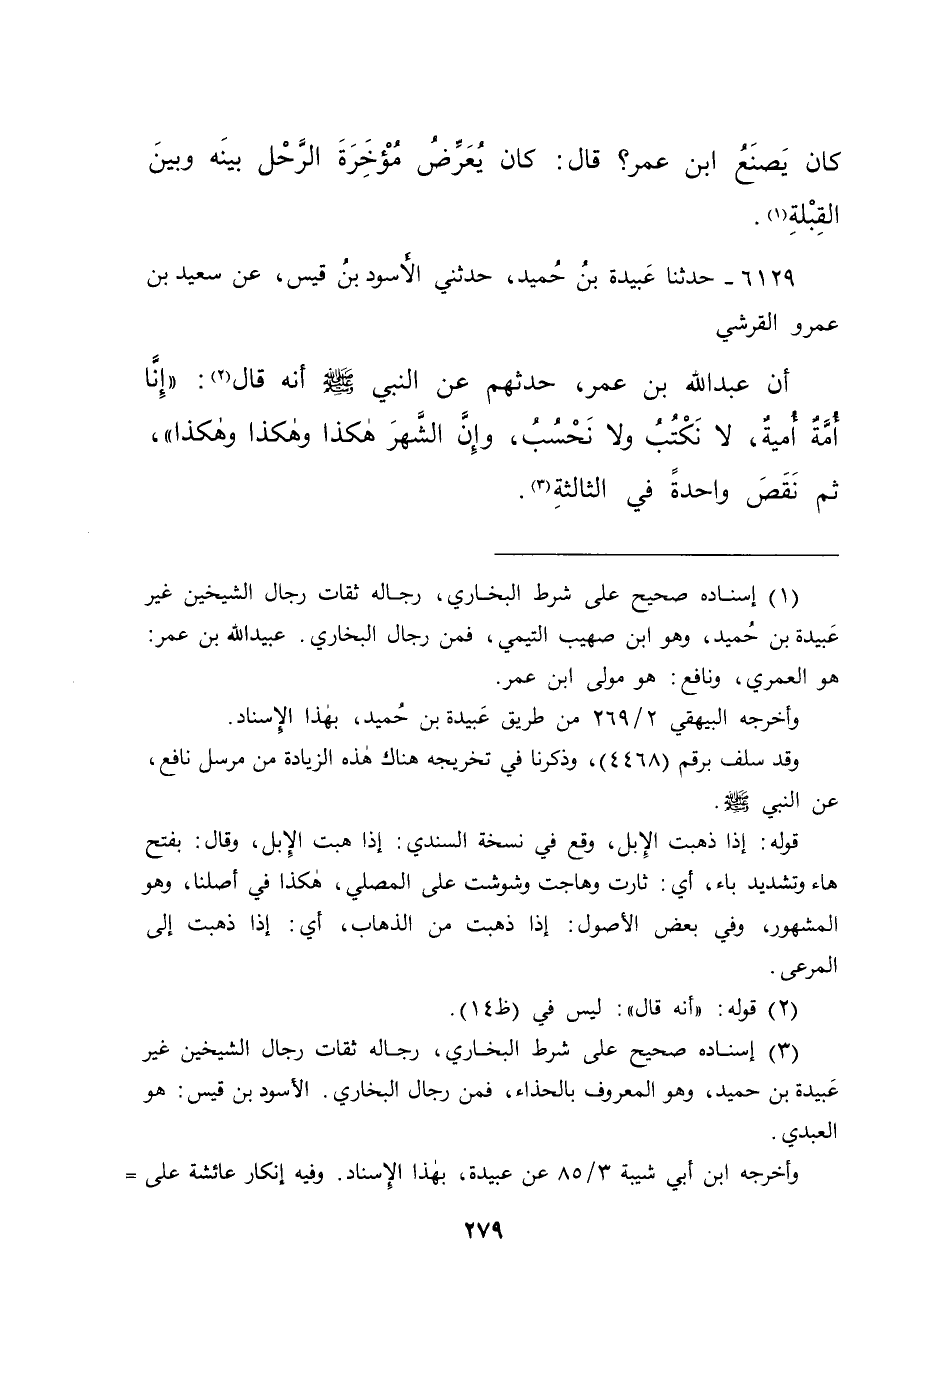 كان يَصنَعُ ابن عمر؟ قال: كان يُعَرِّضُ مُؤْخَِرَةَ الرَّحْلِ بينَه وبينَ
القِبْلةِ(١).
٦١٢٩ - حدثنا عَبيدة بنُ حُميد، حدثني الأَسود بنُ قيس، عن سعيد بن
عمرو القرشي
أن عبدالله بن عمر، حدثهم عن النبي ﷺ أنه قال(٢): «إنَّا
أُمَّةٌ أُميةٌ، لا نَكْتُبُ ولا نَحْسُبُ، وإنَّ الشَّهرَ هٰكذا وهٰكذا وهٰكذا»،
ثم نَقَصَ واحدةً في الثالثةِ(٣).
(١) إسناده صحيح على شرط البخاري، رجاله ثقات رجال الشيخين غير
عَبيدة بن حُميد، وهو ابن صهيب التيمي، فمن رجال البخاري. عبيدالله بن عمر:
هو العمري، ونافع: هو مولى ابن عمر.
وأخرجه البيهقي ٢/٢٦٩ من طريق عَبيدة بن حُميد، بهٰذا الإسناد.
وقد سلف برقم (٤٤٦٨)، وذكرنا في تخريجه هناك هٰذه الزيادة من مرسل نافع،
عن النبي ﷺ.
قوله: إذا ذهبت الإبل، وقع في نسخة السندي: إذا هبت الإبل، وقال: بفتح
هاء وتشديد باء، أي: ثارت وهاجت وشوشت على المصلي، هٰكذا في أصلنا، وهو
المشهور، وفي بعض الأصول: إذا ذهبت من الذهاب، أي: إذا ذهبت إلى
المرعى.
(٢) قوله: «أنه قال»: ليس في (ظ١٤).
(٣) إسناده صحيح على شرط البخاري، رجاله ثقات رجال الشيخين غير
عَبيدة بن حميد، وهو المعروف بالحذاء، فمن رجال البخاري. الأسود بن قيس: هو
العبدي.
وأخرجه ابن أبي شيبة ٣/٨٥ عن عبيدة، بهٰذا الإسناد. وفيه إنكار عائشة على =
٢٧٩